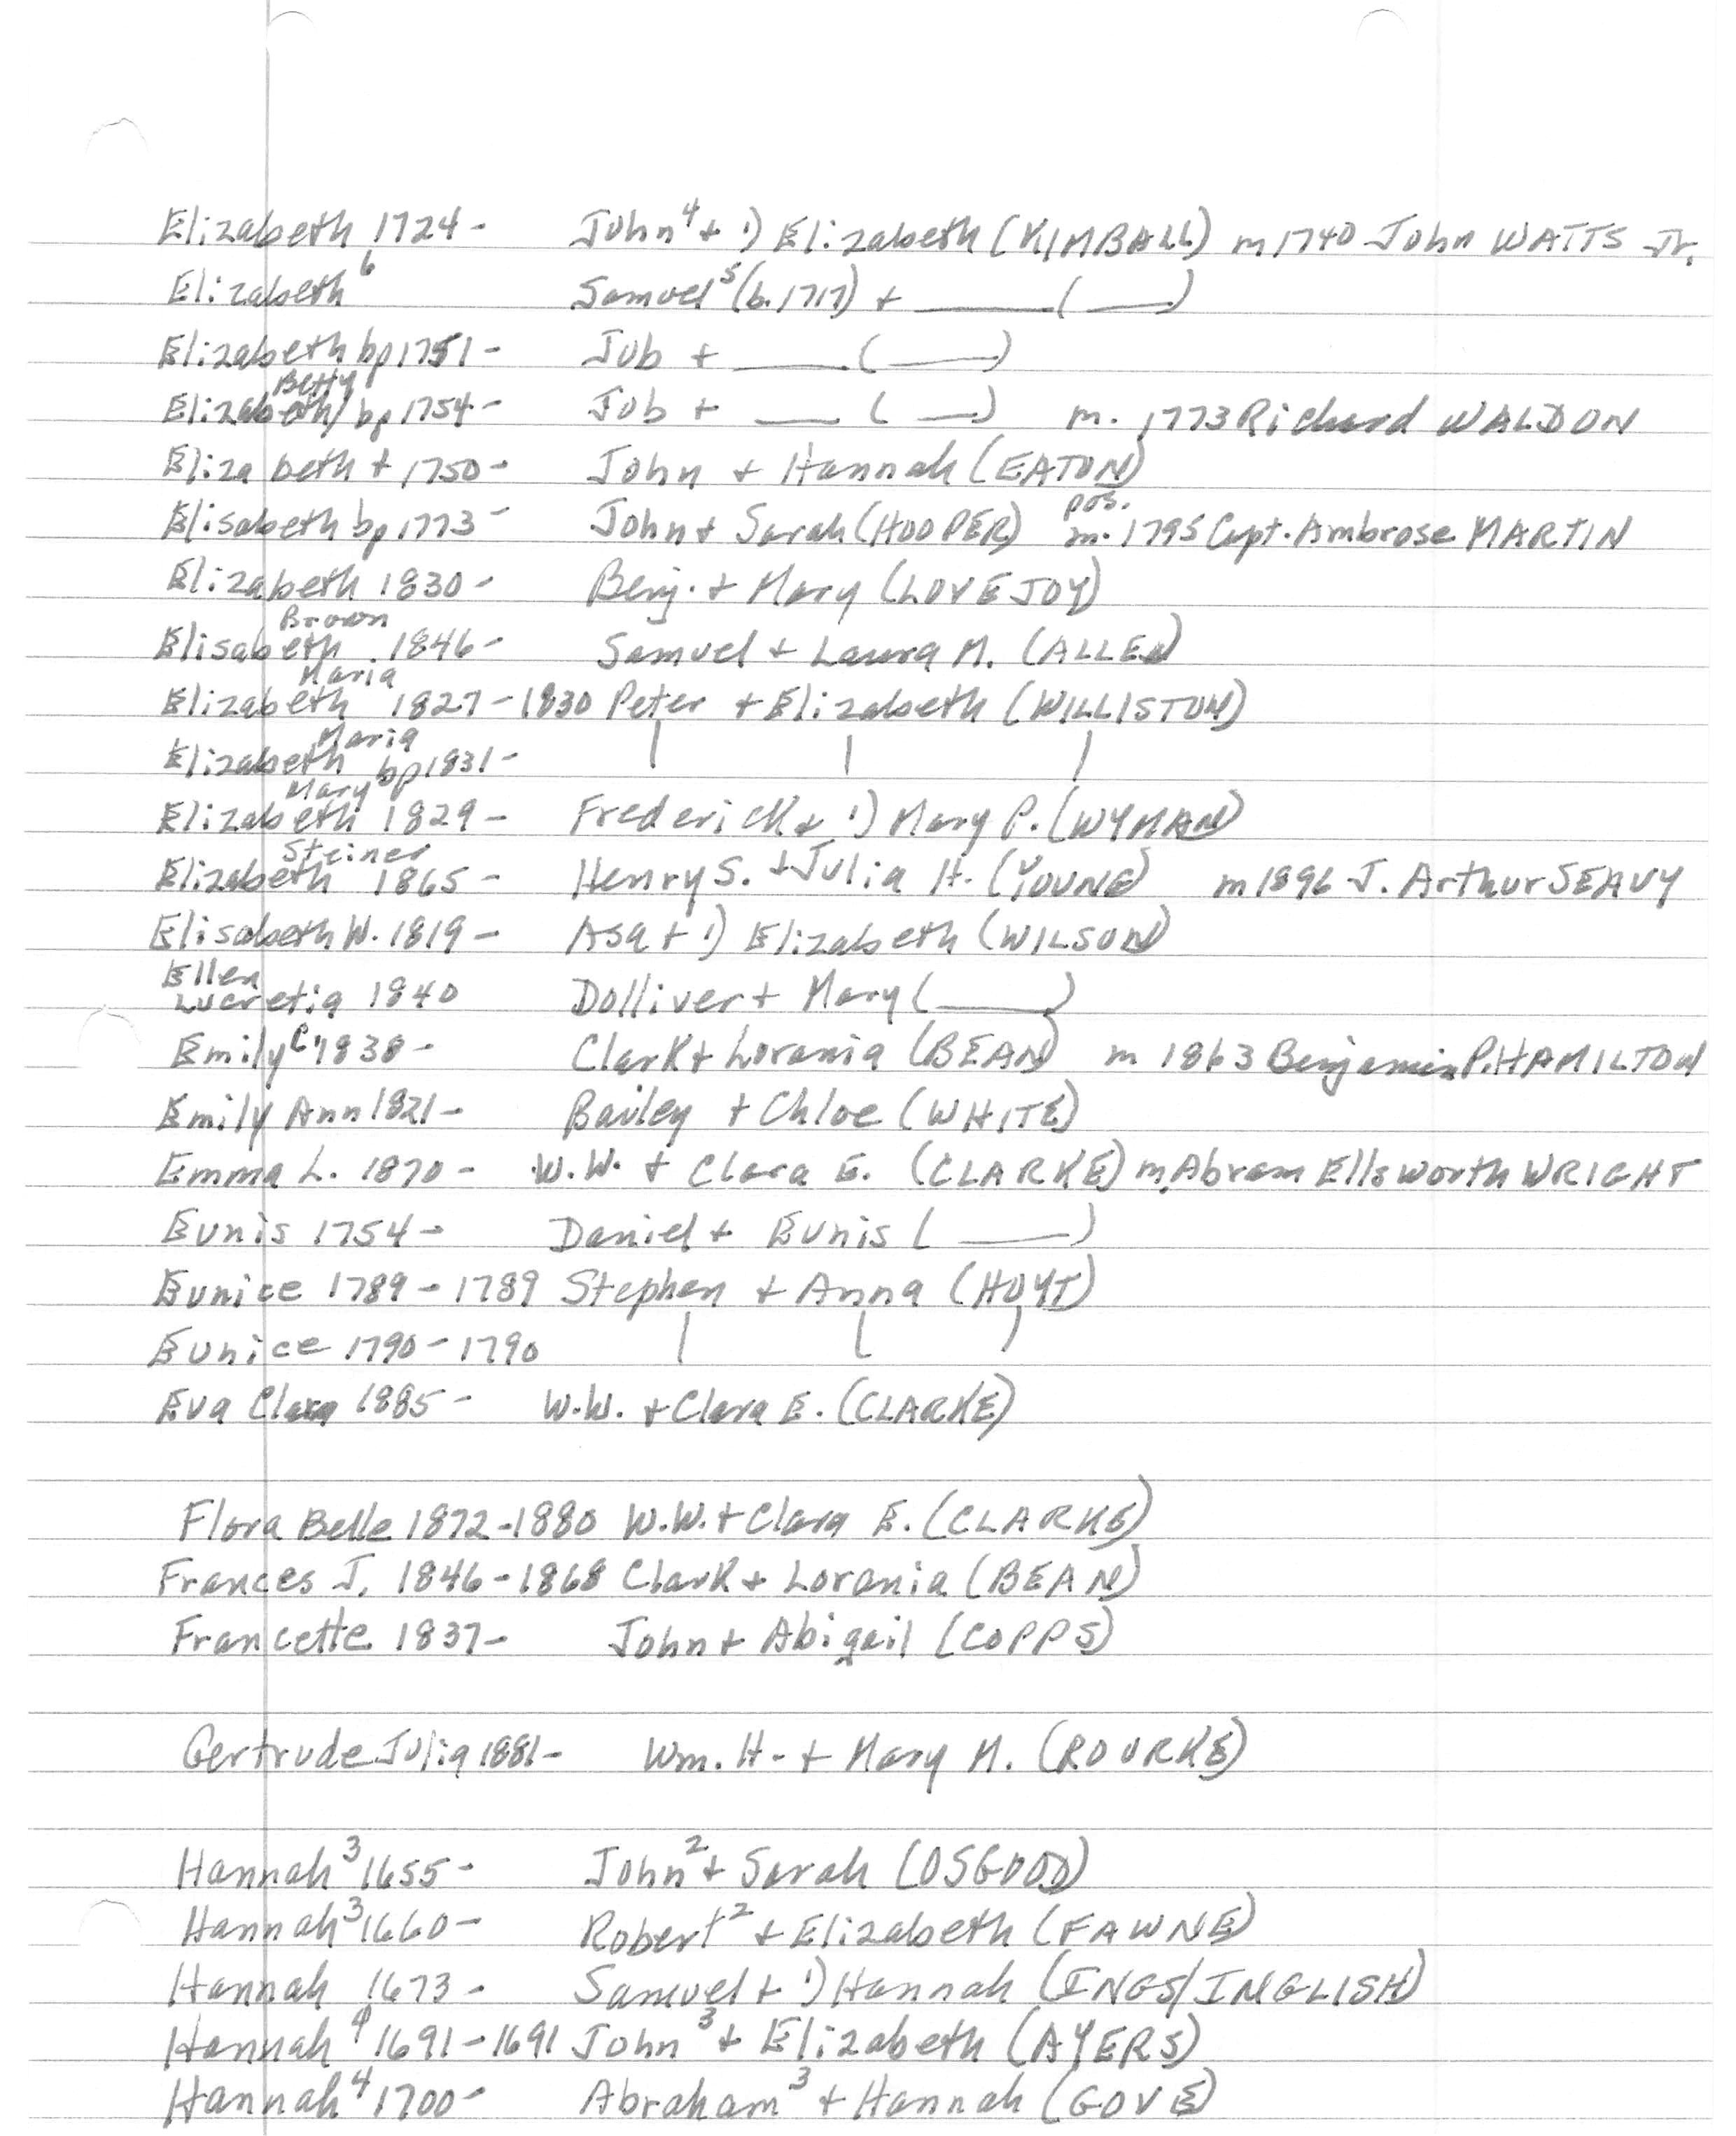 Elizabeth 1724- John⁴ + 1) Elizabeth (KIMBALL) m 1740 John WATTS Jr.
Elizabeth⁶ Samuel⁵ (b. 1717) + ____ ( ___ )
Elizabeth bp 1751- Job + ____ ( ____ )
Elizabeth/Betty bp 1754- Job + ___ ( ___ ) m. 1773 Richard WALDON
Elizabeth + 1750- John + Hannah (EATON)
Elisabeth bp 1773- John + Sarah (HOOPER) pos. m. 1795 Capt. Ambrose MARTIN
Elizabeth 1830- Benj. + Mary (LOVEJOY)
Elisabeth Brown 1846- Samuel + Laura M. (ALLEN)
Elizabeth Maria 1827-1830 Peter + Elizabeth (WILLISTON)
Elizabeth Maria bp 1831- | | |
Elizabeth Mary 1829- Frederick + 1) Mary P. (WYMAN)
Elizabeth Steiner 1865- Henry S. + Julia H. (YOUNG) m 1896 J. Arthur SEAVY
Elisabeth W. 1819- Asa + 1) Elizabeth (WILSON)
Ellen Lucretia 1840 Dolliver + Mary ( ____ )
Emily C. 1838- Clark + Lorania (BEAN) m 1863 Benjamin P. HAMILTON
Emily Ann 1821- Bailey + Chloe (WHITE)
Emma L. 1870- W.W. + Clara E. (CLARKE) m. Abram Ellsworth WRIGHT
Eunis 1754- Daniel + Eunis ( ____ )
Eunice 1789-1789 Stephen + Anna (HOYT)
Eunice 1790-1790 | | |
Eva Clara 1885- W.W. + Clara E. (CLARKE)
Flora Belle 1872-1880 W.W. + Clara E. (CLARKE)
Frances J. 1846-1868 Clark + Lorania (BEAN)
Francette 1837- John + Abigail (COPPS)
Gertrude Julia 1881- Wm. H. + Mary M. (ROURKE)
Hannah³ 1655- John² + Sarah (OSGOOD)
Hannah³ 1660- Robert² + Elizabeth (FAWNE)
Hannah 1673- Samuel + 1) Hannah (INGS/INGLISH)
Hannah⁴ 1691-1691 John³ + Elizabeth (AYERS)
Hannah⁴ 1700- Abraham³ + Hannah (GOVE)